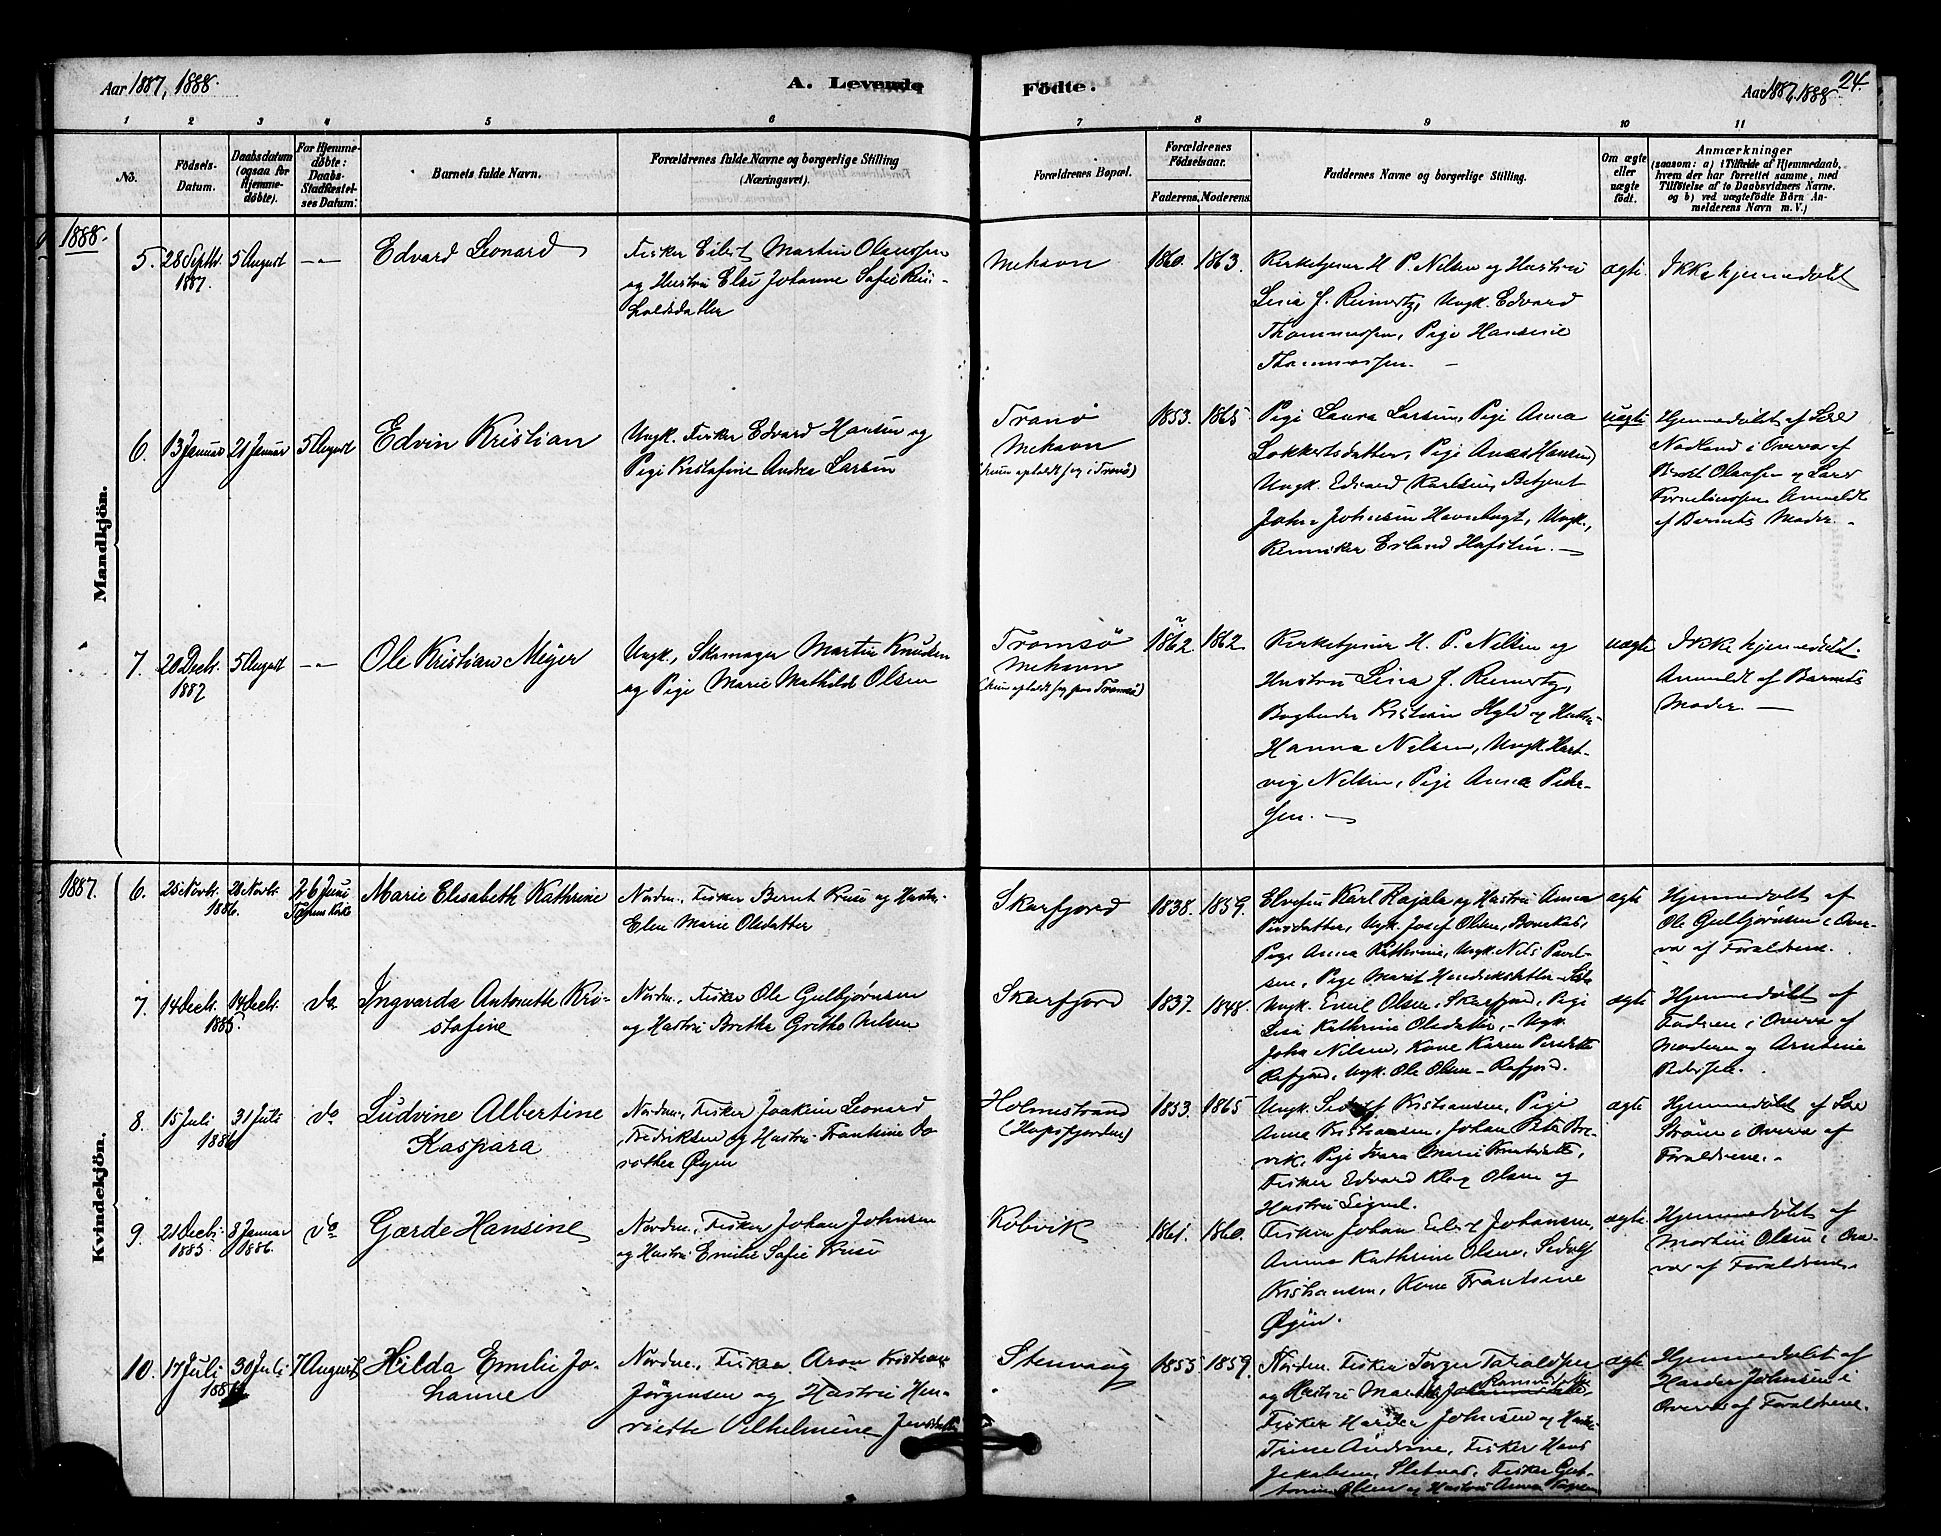 Aar 1887, 1888.
A. Levende
Fødte.
Aar 1887, 1888.
24.
1
2
3
4
5
6
7
8
9
10
11
No.
Fødsels-
Datum.
Daabsdatum
(ogsaa for
Hjemme-
døbte).
For Hjemme-
døbte:
Daabs-
Stadfæstel-
ses Datum.
Barnets fulde Navn.
Forældrenes fulde Navne og borgerlige Stilling
(Næringsvei).
Forældrenes Bopæl.
Forældrenes
Fødselsaar.
Faderens.
Moderens.
Faddernes Navne og borgerlige Stilling.
Om ægte
eller
uægte
født.
Anmærkninger
(saasom: a) i Tilfælde af Hjemmedaab,
hvem der har forrettet samme, med
Tilføielse af to Daabsvidners Navne.
og b) ved uægtefødte Børn An-
melderens Navn m. V.)
Mandkjön.
1888.
5.
28 Septbr.
1887.
5 August
Edvard Leonard
Fisker Eilert Martin Olaussen
og Hustru Else Johanne Sofie
holdsdatter
Mehavn
1860.
1863.
Kirketjener H. P. Nilsen og Hustru
Lisa J. Reinertz, Ungk. Edvard
Thommassen, Pige Hansine
Thommassen.
ægte
Ikke hjemmedøbt
6.
13 Januar
21 Januar
5 August
Edvin Kristian
Ungk. Fisker Edvard Hansen og
Pige Kristofine Andrea Larsen
Tranø
Mehavn
(hun opholdt sig i Tranø)
1853.
1865
Pige Laura Larsen, Pige Anna
Lokkertsdatter, Pige Anna Hansen,
Ungk. Edvard Karlsen, Betjent
John Johnsen Havnbugt, Ungk.,
Erland Hafsten.
uægte
Hjemmedøbt af
Nodland i Overvær af
Olaussen og Lars
Kornelinssen Anmeldt
af Barnets Moder.
7.
20 Decb.
1887
5 August
Ole Kristian Mejer
Ungk., Skomager Martin Knudsen
og Pige Marie Mathilde Olsen
Tromsø
Mehavn
(hun opholdt sig paa Tromsø)
1862.
1862
Kirketjener H. P. Nilsen og
Hustru Lisa J. Reinertz,
Bogbinder Kristian Hyld og Hustru
Hanna Nilsen, Ungk. Hart-
vig Nilsen, Pige Anna Peder-
sen.
uægte
Ikke hjemmedøbt.
Anmeldt af Barnets
Moder.
Kvindekjön.
1887.
6.
25 Novbr.
28 Novbr.
1886.
26 Juni
Marie Elisabeth Kathrine
Nordm., Fisker Bernt Kruse og Hustru
Elen Marie Olsdatter
Skarfjord
1838.
1859.
Karl Rajala og Hustru Anna
Persdatter, Ungk. Josef Olsen,
Pige Anna Kathrine, Ungk. Nils Paul-
sen, Pige Marit Hendrikdatter
ægte
Hjemmedøbt af
Ole Gulbjørnsen i Over-
vær af Forældrene.
7.
14 Decb.
14 Decb.
1885.
do
Ingvarda Antonette Kri-
stofine
Nordm., Fisker Ole Gulbjørnsen
og Hustru Britha Grethe Nilsen
Skarfjord
1837.
1848.
Ungk. Emil Olsen, Skarfjord, Pige
Lisa Kathrine Olsdatter, Ungk.
John Nilsen, Kone Karen Persdatter
Rafjord, Ungk. Ole Olsen - Rafjord.
ægte
Hjemmedøbt af
Faderen i Overvær af
Moderen og Arntine
Pedersen.
8.
15 Juli
31 Juli
1886
do
Ludvine Albertine
Kaspara
Nordm., Fisker Joakim Leonard
Fredriksen og Hustru Frantsine Do
rothea Øyen
Holmestrand
(Hopsfjorden)
1853.
1865
Ungk. Kristiansen, Pige
Anna Kristiansen, Johan Peter Bre-
vik, Pige Marie Knutsdatter,
Fisker Edvard Olsen og
Hustru Signel.
ægte
Hjemmedøbt af
Strøm i Overvær af
Forældrene.
9.
21 Decb.
1885
8 Januar
1886.
do
Gærde Hansine
Nordm., Fisker Johan Johnsen
og Hustru Emilie Sofie Kruse
Kobvik
1861.
1860.
Fisker Johan Johansen,
Anna Kathrine Olsen, Sedolf
Kristiansen, Kone Frantsine
Øyen.
ægte
Hjemmedøbt af
Martin Olsen i Over-
vær af Forældrene.
10.
17 Juli
30 Juli
7 August
Hilda Emilie Jo-
hanne
Nordm., Fisker Aron Kristian
Jørgensen og Hustru Hen-
riette Vilhelmine
Stenvaag
1855
1859.
Nordm. Fisker Torger Taraldsen
og Hustru
Fisker Harder Johnsen og Hustru
Trine Andrine, Fisker Hans
Jakobsen, Sletnes, Fisker Gut-
tormn Olsen og Hustru Anna
ægte
Hjemmedøbt af
Harder Johnsen i
Overvær af Forældrene.